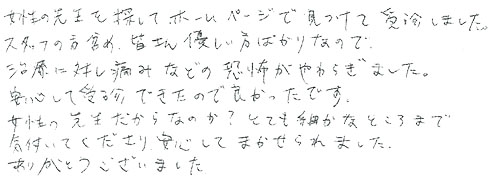 女性の先生を探してホームページで見つけて受診しました。
スタッフの方含め、皆さん優しい方ばかりなので、
治療に対し痛みなどの恐怖がやわらぎました。
安心して受診できたので良かったです。
女性の先生だからなのか？とても細かなところまで
気付いてくださり、安心してまかせられました。
ありがとうございました